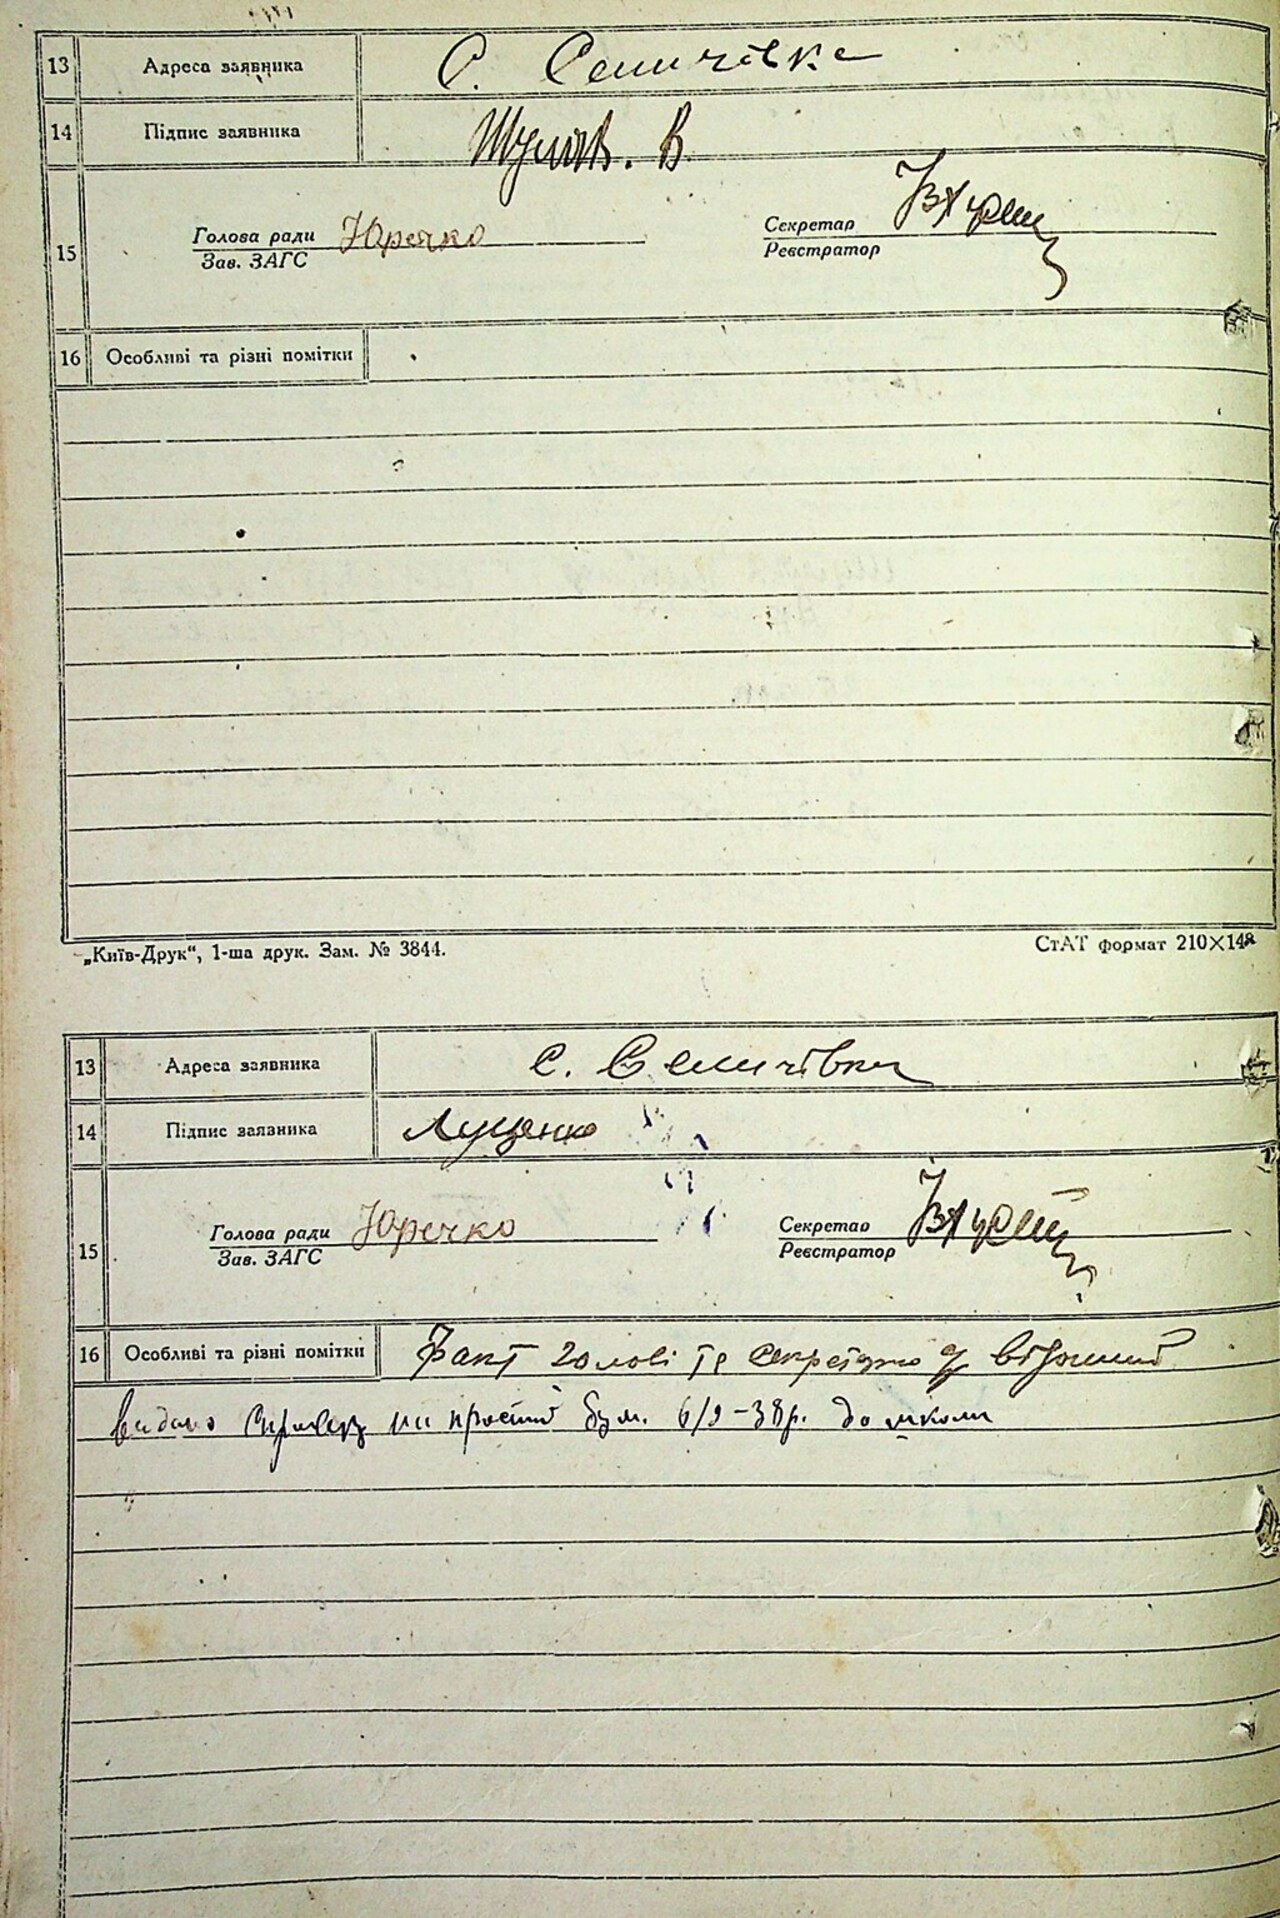 13 Адреса заявника С. Семичівка
14 Підпис заявника В.
15 Голова ради Юречко Секретар
Зав. ЗАГС Реєстратор
16 Особливі та різні помітки
„Київ-Друк“, 1-ша друк. Зам. № 3844. СтАТ формат 210×148
13 Адреса заявника с. Семичівка
14 Підпис заявника Луценко
15 Голова ради Юречко Секретар
Зав. ЗАГС Реєстратор
16 Особливі та різні помітки Факт голові та секретарю відомий
видано на простій бум. 6/9-38р. до школи